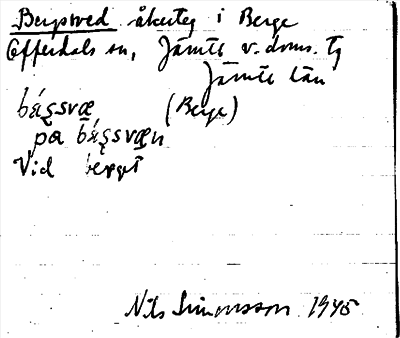 Bergsved åkerteg i Berge
Offerdals sn, Jämtl v. doms. tg
Jämtl län
bág̨svæ (Berge)
pa bág̨svæn
Vid berget
Nils Simonsson 1945